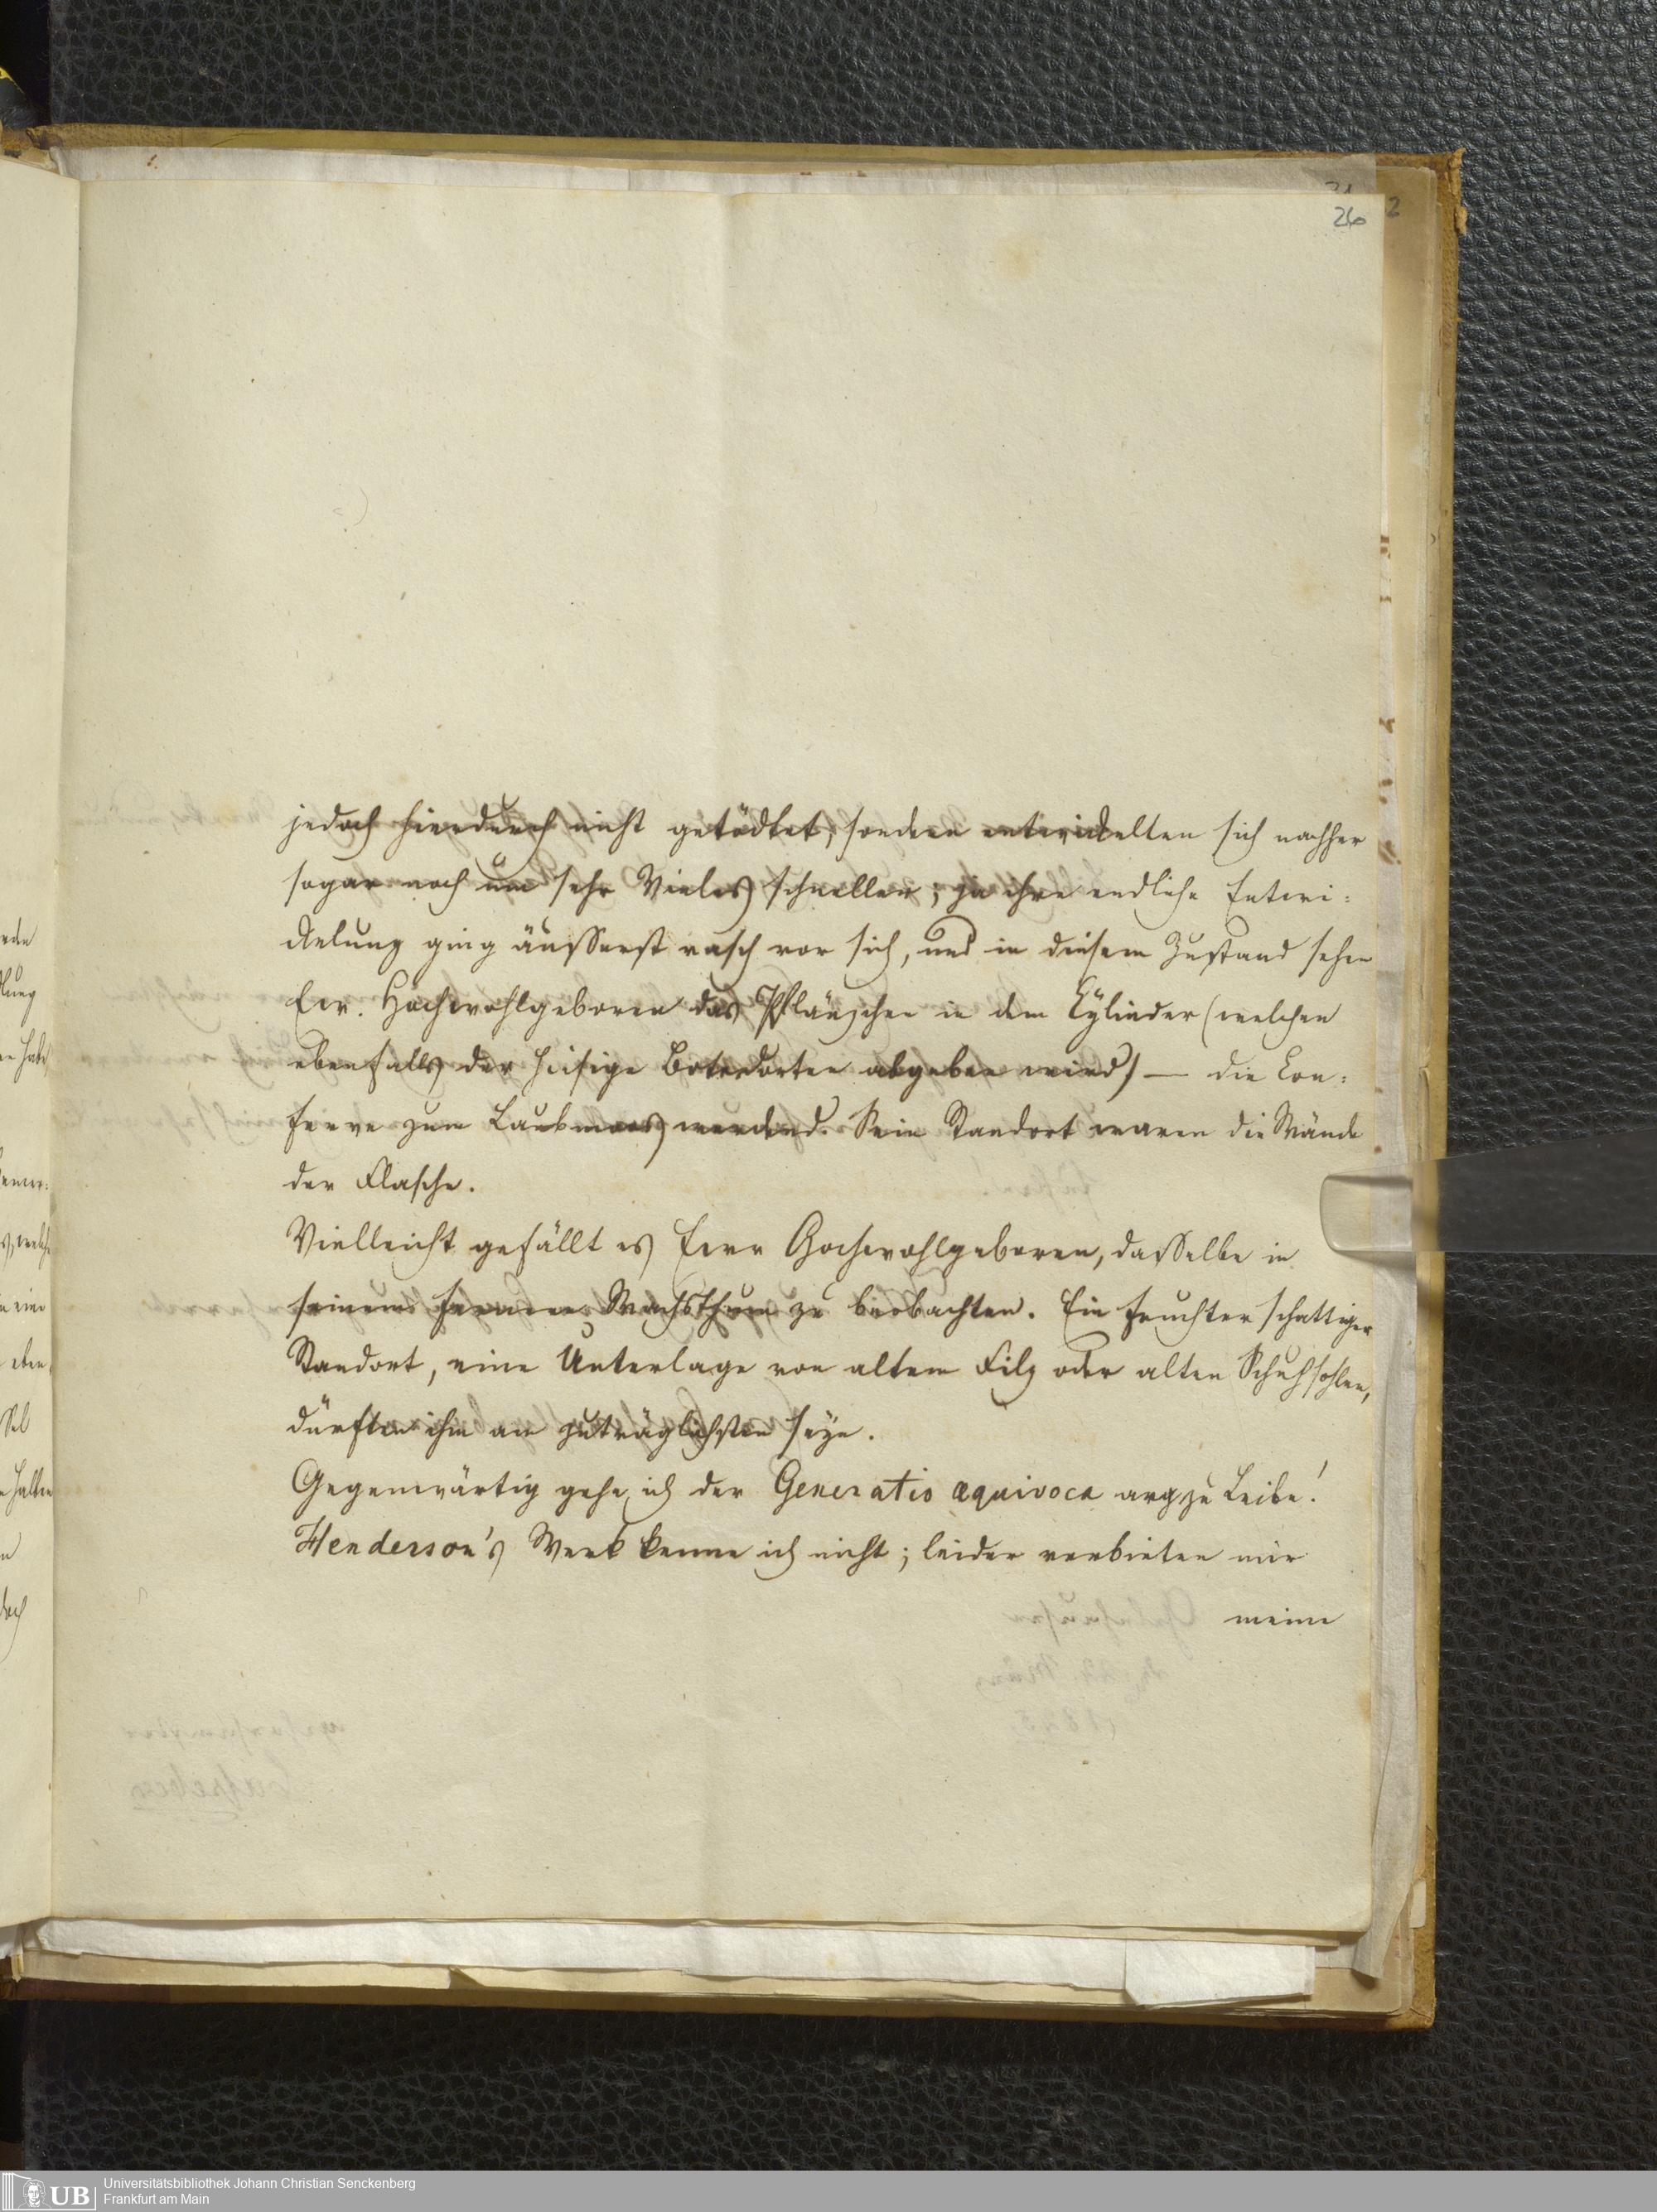 26
2
jedoch hierdurch nicht getödtet, sondern entwickelten sich nachher
sogar noch um sehr Vieles schneller; ja ihre endliche Entwi-
ckelung ging äusserst rasch vor sich, und in diesem Zustand sehen
Ew. Hochwohlgeboren das Pflänzchen in dem Cylinder (welchen
ebenfalls der hiesige abgeben wird) — die Con-
ferve zum Laubmoos werdend. Sein Standort waren die Wände
der Flasche.
Vielleicht gefällt es Euer Hochwohlgeboren, dasselbe in
seinem fernern Wachsthum zu beobachten. Ein feuchter schattiger
Standort, eine Unterlage von altem Filz oder alten Schuhsohlen,
dürften ihm am zuträglichsten seyn.
Gegenwärtig gehe ich der Generatio aequivoca arg zu Leibe!
Henderson's Werk kenne ich nicht; leider verbieten mir
meine
UB Universitätsbibliothek Johann Christian Senckenberg
Frankfurt am Main